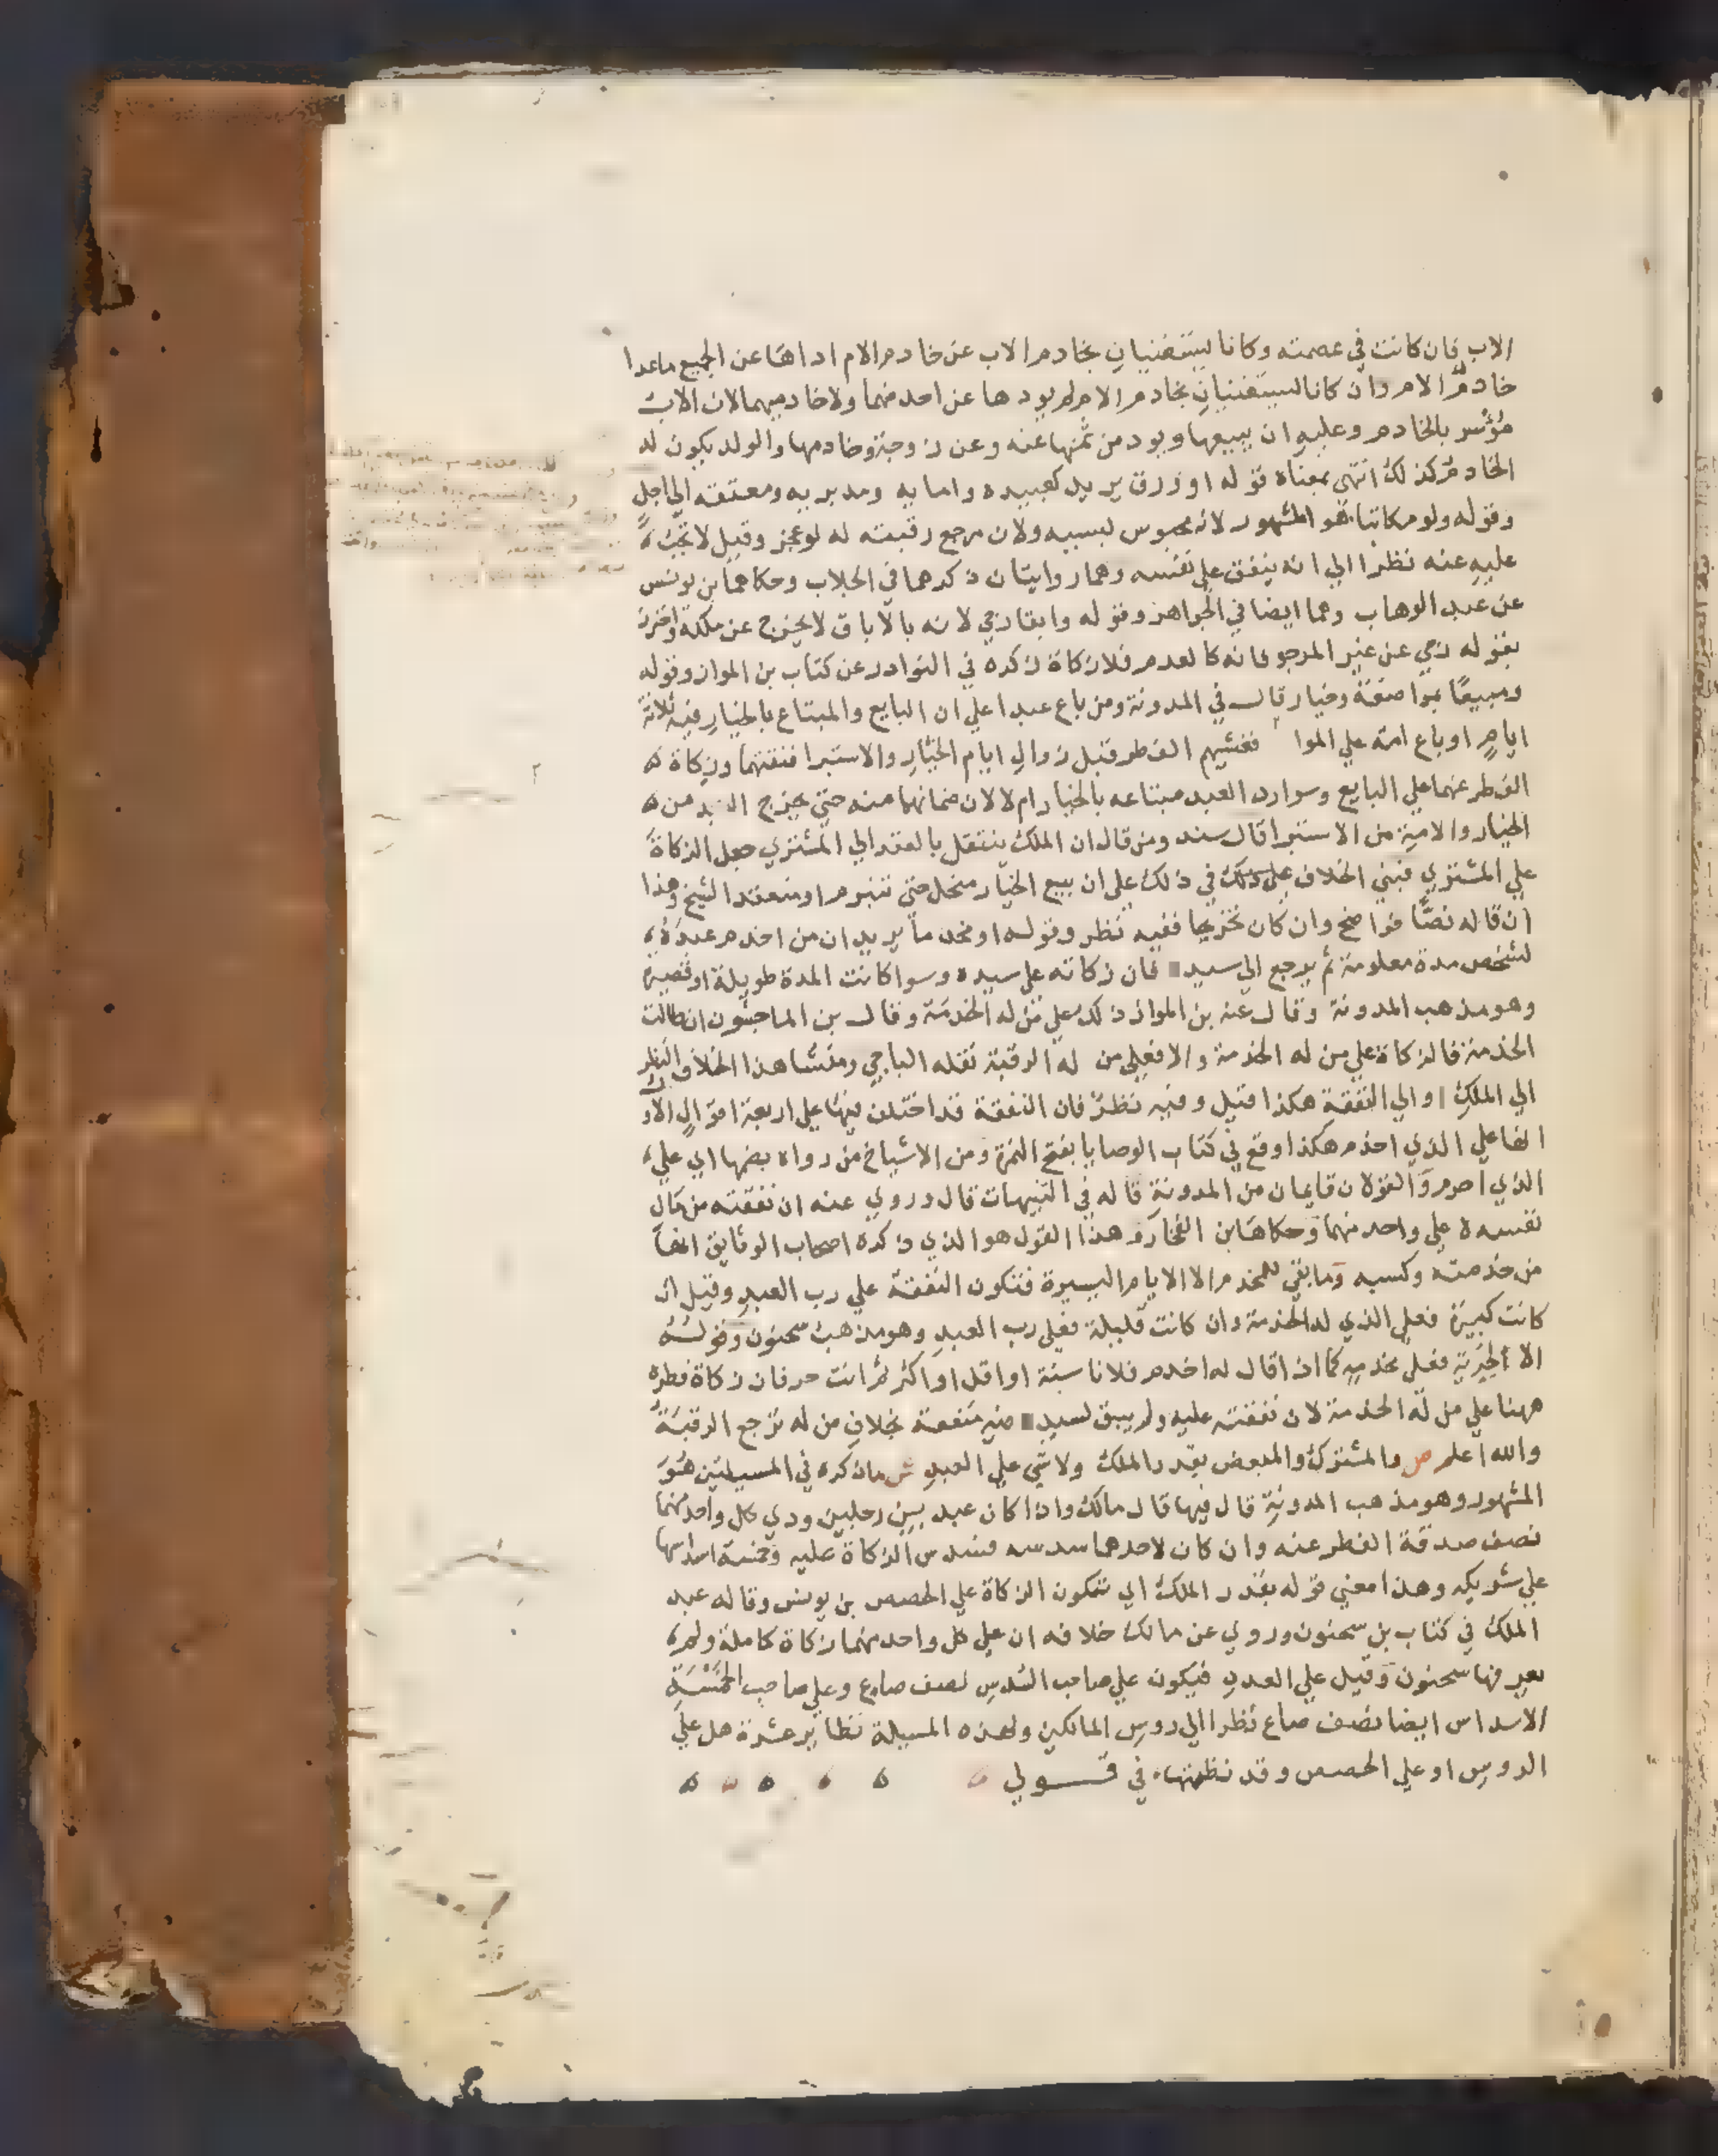 الاب فان كانت في عصمته وكانا ليستغنيان بخادم الاب عن خادم الام اداها عن الجميع ماعدا
خادم الام وان كانا ليستغنيان بخادم الام لم يود ها عن احد منهما ولا خادميهما لان الاب
موسر بالخادم وعليه ان يبيعها ويود من ثمنها عنه وعن زوجته وخادمها والولد يكون له
الخادم كذلك انتهى بمعناه قوله او برق يريد كعبيده وامايه ومدبريه ومعتقه الي اجل
وقوله ولو مكاتبا هو المشهور لانه محبوس بسببه ولان مرجع رقبته له لو عجز وقيل لا تجب
عليه عنه نظرا الي انه ينفق علي نفسه وهما روايتان ذكرهما في الجلاب وحكاهما بن يونس
عن عبد الوهاب وهما ايضا في الجواهر وقوله وابقا رجي لانه بالاباق لا يخرج عن ملكه واحترز
بقوله رجي عن غير المرجو فانه كالعدم فلا زكاة ذكره في النوادر عن كتاب بن المواز وقوله
ومبيعا بمواضعة وخيار قال في المدونة ومن باع عبدا علي ان البايع والمبتاع بالخيار فيه ثلاثة
ايام او باع امة علي الموا فغشيهم الفطر قبل زوال ايام الخيار والاستبرا فنفقتهما وزكاة
الفطر عنهما علي البايع وسوا رد العبد مبتاعه بالخيار ام لا لان ضمانهما منه حتي يخرج العبد من
الخيار والامة من الاستبرا قال سند ومن قال ان الملك ينتقل بالعقد الي المشتري جعل الزكاة
علي المشتري فبني الخلاف علي ذلك في ذلك علي ان بيع الخيار منحل حتي ينبرم او منعقد الشيخ وهذا
ان قاله نصا فواضح وان كان تخريجا ففيه نظر وقوله او مخدما يريد ان من اخدم عبده
لشخص مدة معلومة ثم يرجع الي سيد فان زكاته علي سيده وسوا كانت المدة طويلة او قصيرة
وهو مذهب المدونة وقال عنه بن المواز ذلك علي من له الخدمة وقال بن الماجشون ان طالت
الخدمة فالزكاة علي من له الخدمة والا فعلي من له الرقبة نقله الباجي ومنشا هذا الخلاف النظر
الي الملك او الي النفقة هكذا قيل وفيه نظر فان النفقة قد اختلف فيها علي اربعة اقوال الاول
انها علي الذي اخدم هكذا وقع في كتاب الوصايا بفتح الهمزة ومن الاشياخ من رواه بضمها اي علي
الذي اخدم والقولان قايمان من المدونة قاله في التنبيهات قال وروي عنه ان نفقته من مال
نفسه لا علي واحد منهما وحكاها بن الفخار وهذا القول هو الذي ذكره اصحاب الوثايق انها
من خدمته وكسبه وما بقي للمخدم الا الايام اليسيرة فتكون النفقة علي رب العبد وقيل ان
كانت كبيرة فعلي الذي له الخدمة وان كانت قليلة فعلي رب العبد وهو مذهب سحنون وقوله
الا لحرية فعلي مخدمه كما اذا قال له اخدم فلانا سنة او اقل او اكثر ثم انت حر فان زكاة فطره
ههنا علي من له الخدمة لان نفقته عليه ولم يبق لسيد فيه منفعة بخلاف من له ترجع الرقبة
والله اعلم ص والمشترك والمبعض بقدر الملك ولا شي علي العبد ش ما ذكره في المسيلتين هو
المشهور وهو مذهب المدونة قال فيها قال مالك واذا كان عبد بين رجلين ودي كل واحد منهما
نصف صدقة الفطر عنه وان كان لاحدهما سدسه فسدس الزكاة عليه وخمسة اسداسها
علي شريكه وهذا معني قوله بقدر الملك اي تتكون الزكاة علي الحصص بن يونس وقاله عبد
الملك في كتاب بن سحنون وروي عن مالك خلافه ان علي كل واحد منهما زكاة كاملة ولم
يعرفها سحنون وقيل علي العدد فيكون علي صاحب السدس نصف صاع وعلي صاحب الخمسة
الاسداس ايضا نصف صاع نظرا الي روس المالكين ولهذه المسيلة نظاير عشرة هل علي
الروس او علي الحصص وقد نظمتها في قولي